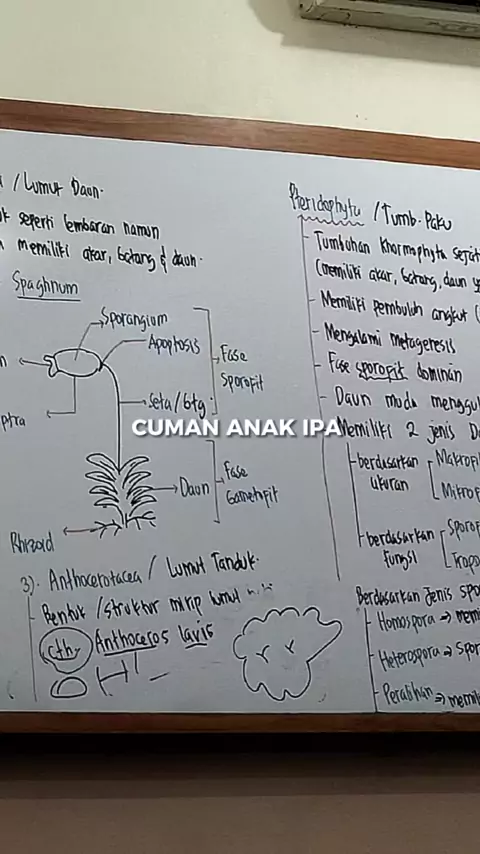 / Lumut Daun.
seperti lembaran namun
memiliki akar, batang & daun.
Spaghnum
Sporangium
Apoptosis
Fase
Sporofit
Seta/btg
ptra
Daun
Fase
Gametofit
Rhizoid
3). Anthocerotacea / Lumut Tanduk.
- Bentuk / struktur mirip lumut
cth
Anthoceros lavis
Pteridophyta / Tumb. Paku
- Tumbuhan khormophyta sejat
(memiliki akar, batang, daun y
- Memiliki pembuluh angkut (
- Mengalami metagenesis
- Fase sporofit dominan
- Daun muda menggul
CUMAN ANAK IPA
Memiliki 2 jenis D
- berdasarkan
ukuran
Makrofi
Mikrof
- berdasarkan
fungsi
Sporof
Tropo
Berdasarkan jenis spo
- Homospora => memi
- Heterospora => spor
- Peralihan => memil